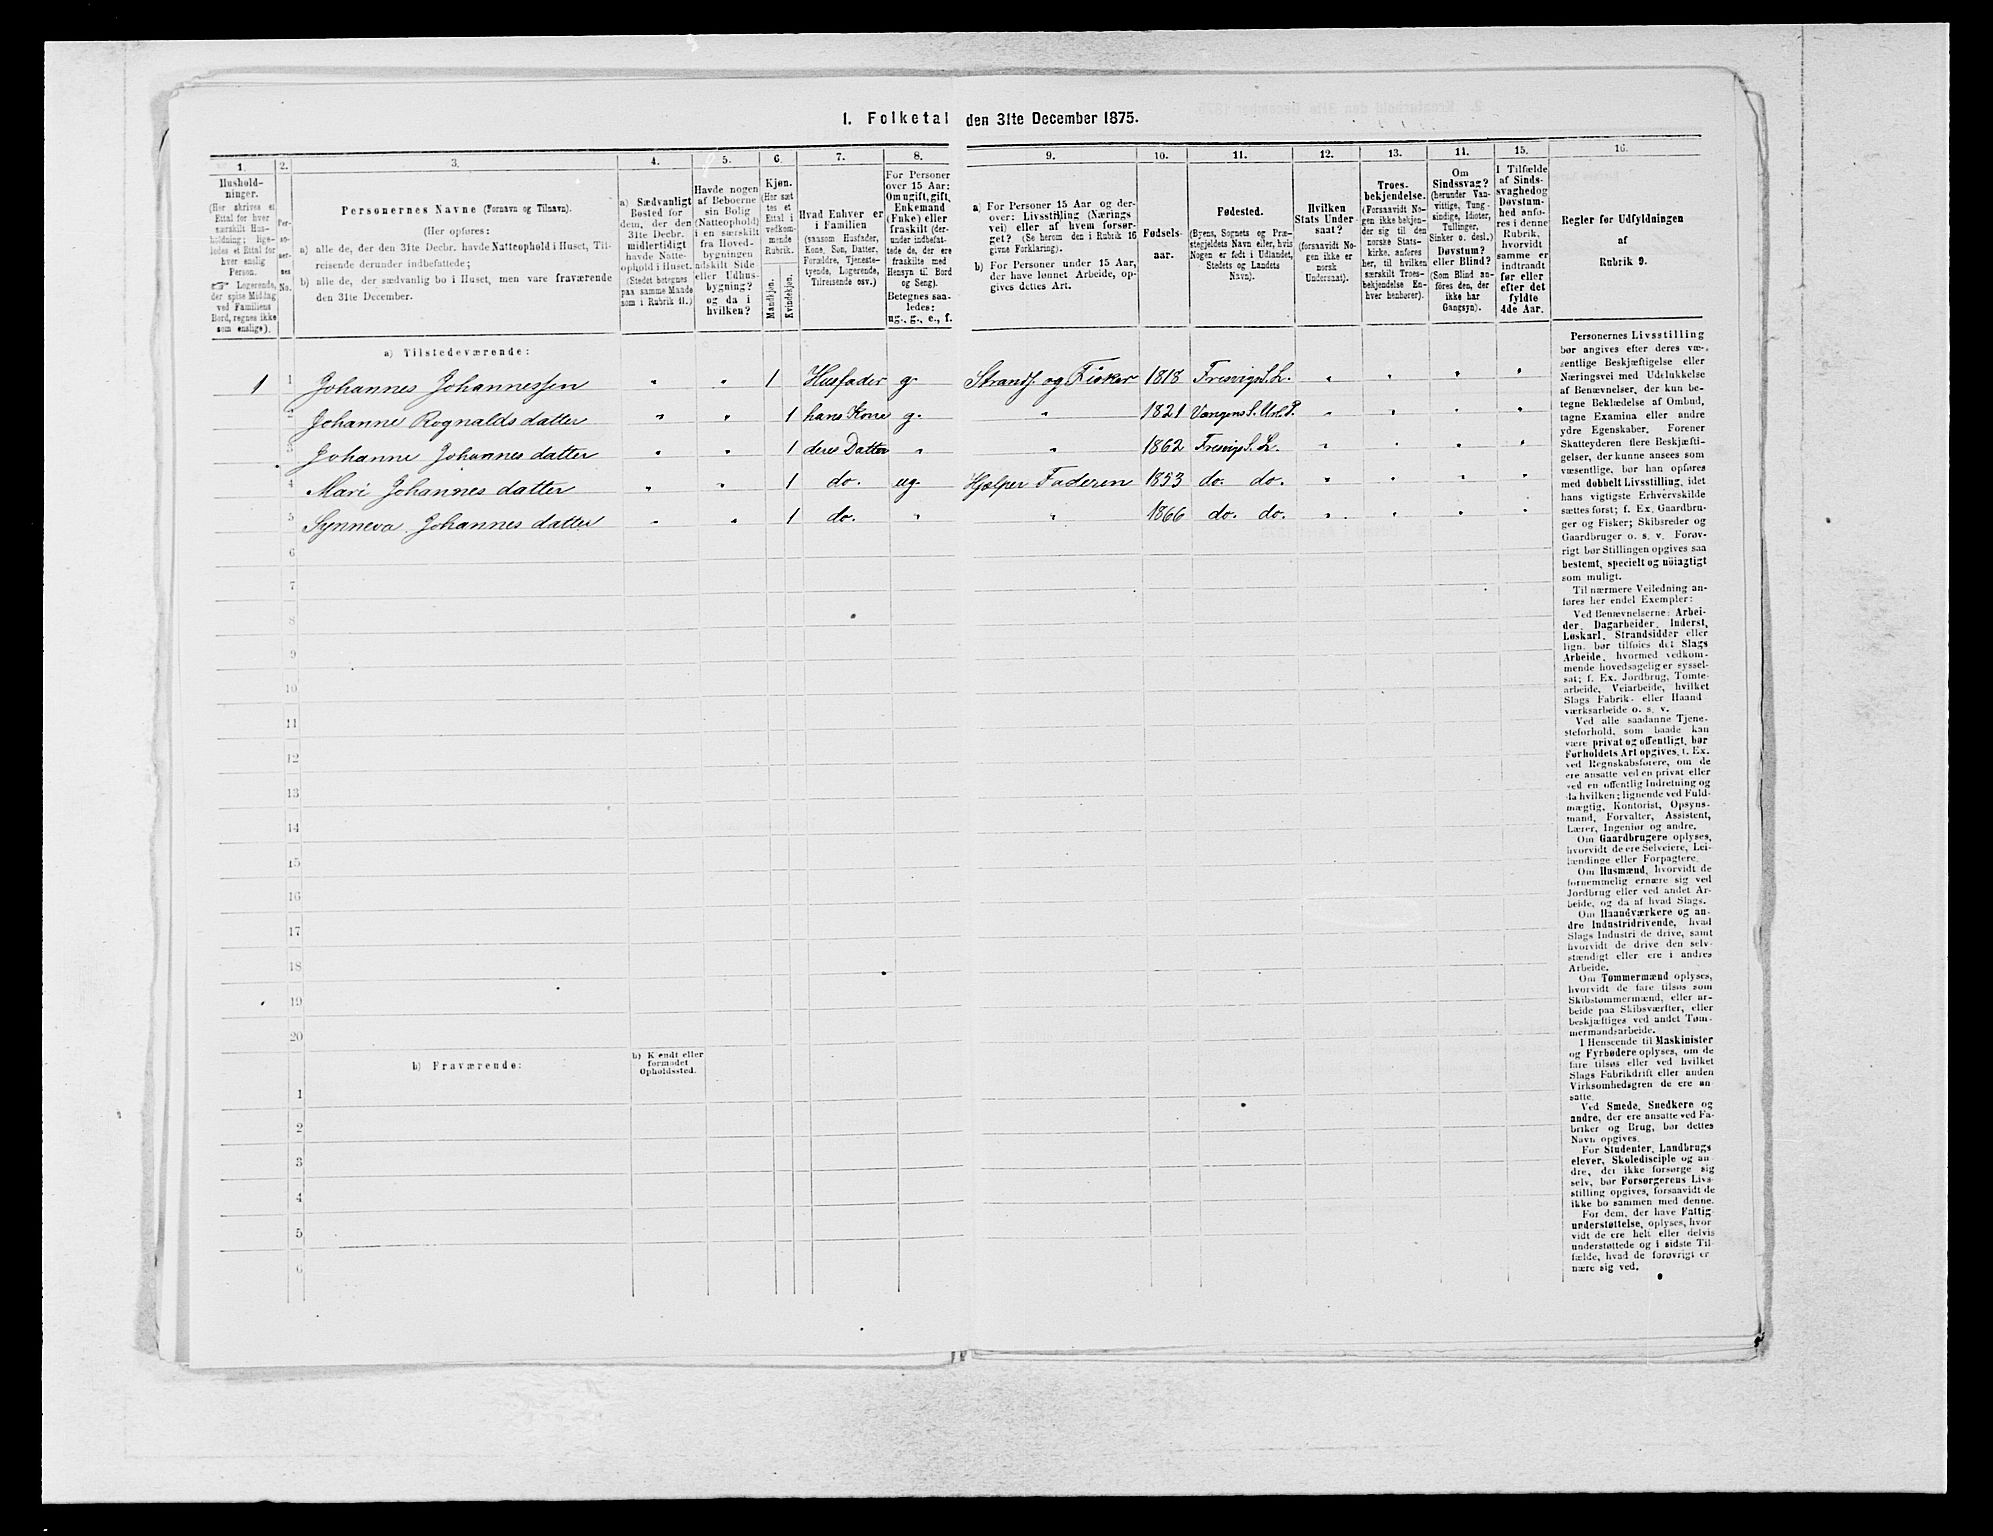 1. Folketal den 31te December 1875.
1. 2. 3. 4. 5. 6. 7. 8. 9. 10. 11. 12. 13. 14. 15. 16.
Hushold-
ninger.
(Her skrives et
Ettal for hver
særskilt Hus-
holdning; lige-
ledes et Ettal for
hver enslig
Person.
☞ Logerende,
der spise Middag
ved Familiens
Bord, regnes ikke
som enslige).
Per-
so-
ner-
nes
No.
Personernes Navne (Fornavn og Tilnavn).
(Her opføres:
a) alle de, der den 31te Decbr. havde Natteophold i Huset, Til-
reisende derunder indbefattede;
b) alle de, der sædvanlig bo i Huset, men vare fraværende
den 31te December.
a) Sædvanligt
Bosted for
dem, der den
31te Decbr.
midlertidigt
havde Natte-
ophold i Huset.
(Stedet betegnes
paa samme Maade
som i Rubrik 11.)
Havde nogen
af Beboerne
sin Bolig
(Natteophold)
i en særskilt
fra Hoved-
bygningen
adskilt Side
eller Udhus-
bygning?
og da i
hvilken?
Kjøn.
(Her sæt
tes et
Ettal i
vedkom-
mende
Rubrik.
Mandkjøn.
Kvindekjøn.
Hvad Enhver er
i Familien
(saasom Husfader,
Kone, Søn, Datter,
Forældre, Tjeneste-
tyende, Logerende,
Tilreisende osv.)
For Personer
over 15 Aar:
Om ugift, gift,
Enkemand
(Enke) eller
fraskilt (der-
under indbefat-
tede de, der ere
fraskilte med
Hensyn til Bord
og Seng).
Betegnes saa-
ledes:
ug., g., e., f.
a) For Personer 15 Aar og der-
over: Livsstilling (Nærings
vei) eller af hvem forsør-
get? (Se herom den i Rubrik 16
givne Forklaring).
b) For Personer under 15 Aar,
der have lønnet Arbeide, op-
gives dettes Art.
Fødsels-
aar.
Fødested.
(Byens, Sognets og Præ-
stegjeldets Navn eller, hvis
Nogen er født i Udlandet,
Stedets og Landets
Navn).
Hvilken
Stats Under-
saat?
(forsaavidt No-
gen ikke er
norsk
Undersaat).
Troes-
bekjendelse.
(Forsaavidt No-
gen ikke bekjen-
der sig til den
norske Stats-
kirke, anføres
her, til hvilken
særskilt Troes-
bekjendelse En-
hver henhører).
Om
Sindssvag?
(herunder Van-
vittige, Tung-
sindige, Idioter,
Tullinger,
Sinker o. desl.)
Døvstum?
eller Blind?
(Som Blind an-
føres den, der
ikke har
Gangsyn).
I Tilfælde
af Sinds-
svaghed og
Døvstum-
hed anfø-
res i denne
Rubrik,
hvorvidt
samme er
indtraadt
før eller
efter det
fyldte
4de Aar.
Regler for Udfyldningen
af
Rubrik 9.
a) Tilstedeværende:
1 1 Johannes Johannessen " " 1 Husfader g. Strands. og Fisker 1818 Fresvigs S. L. " " " "
2 Johanne Rognaldsdatter " " 1 hans Kone g. " 1821 Vangens S. Url. P. " " " "
3 Johanne Johannesdatter " " 1 deres Datter " " 1862 Fresvigs S. L. " " " "
4 Mari Johannesdatter " " 1 do. ug. Hjælper Faderen 1853 do. do. " " " "
5 Synneva Johannesdatter " " 1 do. " " 1866 do. do. " " " "
6
7
8
9
10
11
12
13
14
15
16
17
18
19
20
b) Fraværende:
b) Kjendt eller
formodet
Opholdssted.
1
2
3
4
5
6
Personernes Livsstilling
bør angives efter deres væ-
sentlige Beskjæftigelse eller
Næringsvei med Udelukkelse
af Benævnelser, der kun be-
tegne Beklædelse af Ombud,
tagne Examina eller andre
ydre Egenskaber. Forener
Skatteyderen flere Beskjæfti-
gelser, der kunne ansees som
væsentlige, bør han opføres
med dobbelt Livsstilling, idet
hans vigtigste Erhvervskilde
sættes først; f. Ex. Gaardbru-
ger og Fisker; Skibsreder og
Gaardbruger o. s. v. Forøv-
rigt bør Stillingen opgives saa
bestemt, specielt og nöiagtigt
som muligt.
Til nærmere Veiledning an-
føres her endel Exempler:
Ved Benævnelserne: Arbei-
der, Dagarbeider, Inderst,
Løskarl, Strandsidder eller
lign. bør tilføies det Slags
Arbeide, hvormed vedkom-
mende hovedsagelig er syssel-
sat; f. Ex. Jordbrug, Tomte-
arbeide, Veiarbeide, hvilket
Slags Fabrik- eller Haand
værksarbeide o. s. v.
Ved alle saadanne Tjene-
steforhold, som baade kan
være privat og offentligt, bør
Forholdets Art opgives, f. Ex.
ved Regnskabsførere, om de
ere ansatte ved en privat eller
ved en offentlig Indretning og
da hvilken; lignende ved Fuld-
mægtig, Kontorist, Opsyns-
mand, Forvalter, Assistent,
Lærer, Ingeniør og andre.
Om Gaardbrugere oplyses,
hvorvidt de ere Selveiere, Lei-
lændinge eller Forpagtere.
Om Husmænd, hvorvidt de
fornemmelig ernære sig ved
Jordbrug eller ved andet Ar-
beide, og da af hvad Slags.
Om Haandværkere og an-
dre Industridrivende, hvad
Slags Industri de drive, samt
hvorvidt de drive den selv-
stændigt eller ere i andres
Arbeide.
Om Tømmermænd oplyses,
hvorvidt de fare tilsøs som
Skibstømmermænd, eller ar-
beide paa Skibsværfter, eller
beskjæftiges ved andet Tøm-
mermandsarbeide.
I Henseende til Maskinister
og Fyrbødere oplyses, om de
fare tilsøs eller ved hvilket
Slags Fabrikdrift eller anden
Virksomhedsgren de ere an-
satte.
Ved Smede, Snedkere og
andre, der ere ansatte ved Fa-
briker og Brug, bør dettes
Navn opgives.
For Studenter, Landbrugs
elever, Skoledisciple og an-
dre, der ikke forsørge sig
selv, bør Forsørgerens Livs-
stilling opgives, forsaavidt de
ikke bo sammen med denne.
For dem, der have Fattig-
understøttelse, oplyses, hvor
vidt de ere helt eller delvis
understøttede og i sidste Til-
fælde, hvad de forøvrigt er
nære sig ved.